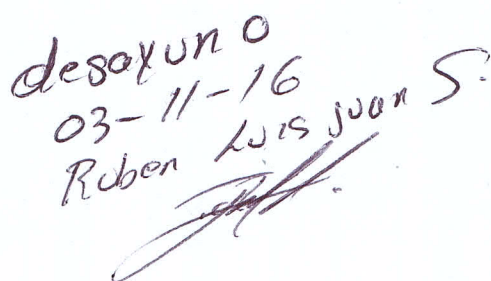 desayuno
03-11-16
Ruben Luis Juan S.